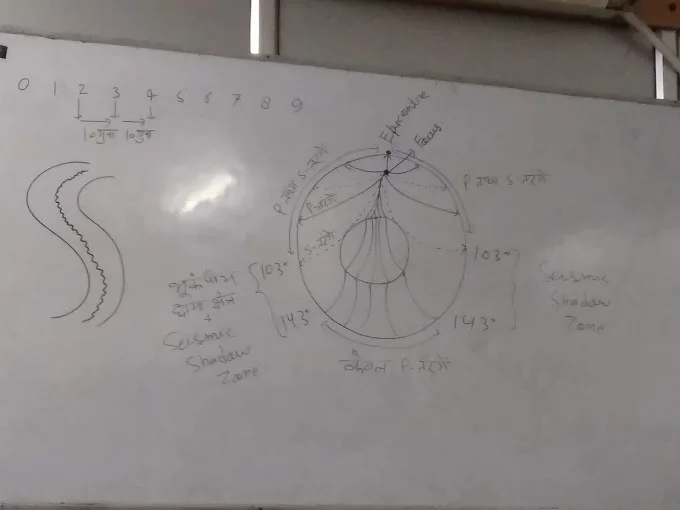 0 1 2 3 4 5 6 7 8 9
10 गुना 10 गुना
Epicentre
Focus
P तथा S-तरंगे
P तथा S-तरंगे
P-तरंगे
S-तरंगे
103°
103°
भूकंपीय
छाया क्षेत्र
+
Seismic
Shadow
Zone
143°
143°
Seismic
Shadow
Zone
केवल P-तरंगें